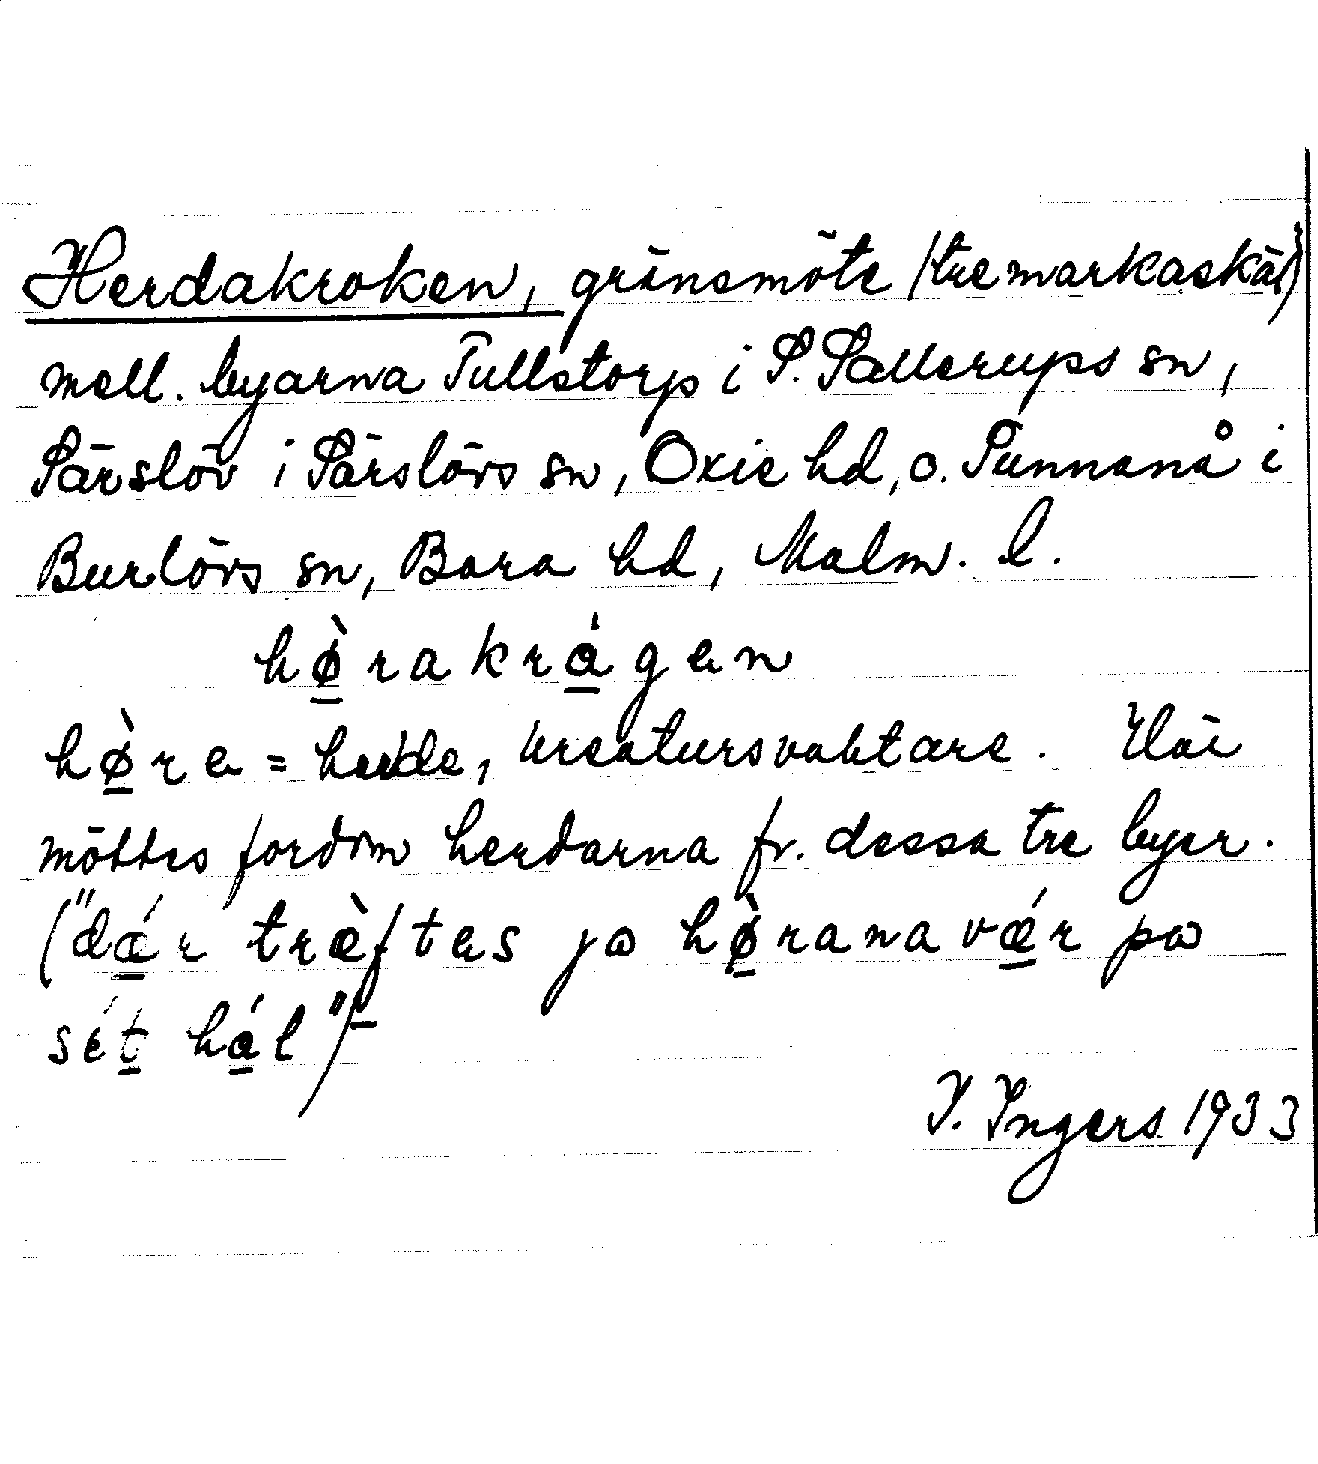 Herdakroken, gränsmöte (tremarkaskäl)
mell. byarna Tullstorp i S. Sallerups sn,
Särslöv i Särslövs sn, Oxie hd, o. Sunnanå i
Burlövs sn, Bara hd, Malm. l.
hø̀rakrágen
hø̀re = herde, kreatursvaktare. Här
möttes fordom herdarna fr. dessa tre byer.
("dǽr trèftes ja hø̀rana vǽr pa
sét hál")
I. Ingers 1933